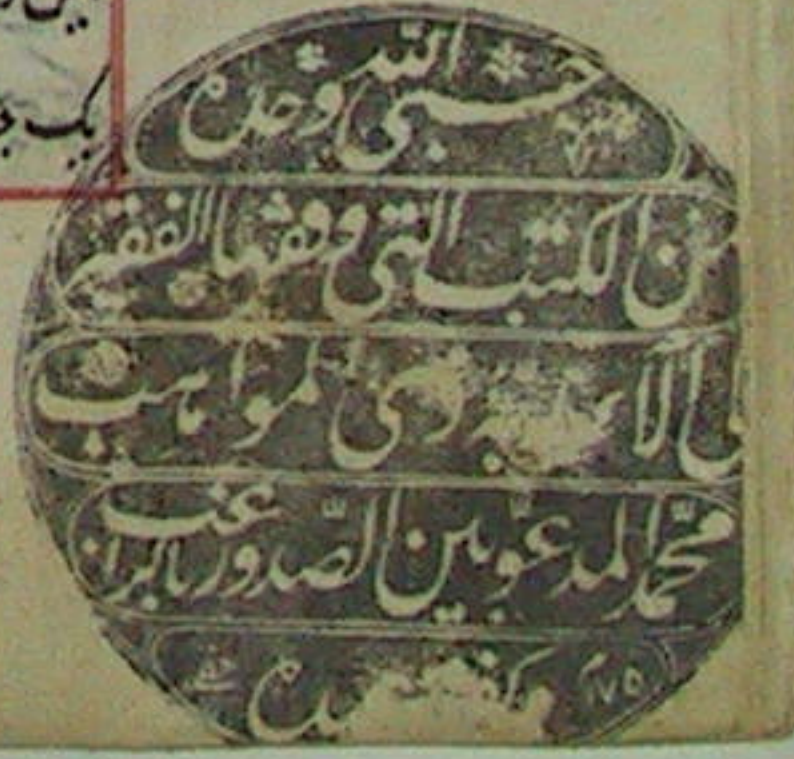 حسبي الله وحده
من الكتب التي وقفها الفقير
آلاء ربه ذي المواهب
محمد المدعو بين الصدور بالراغب